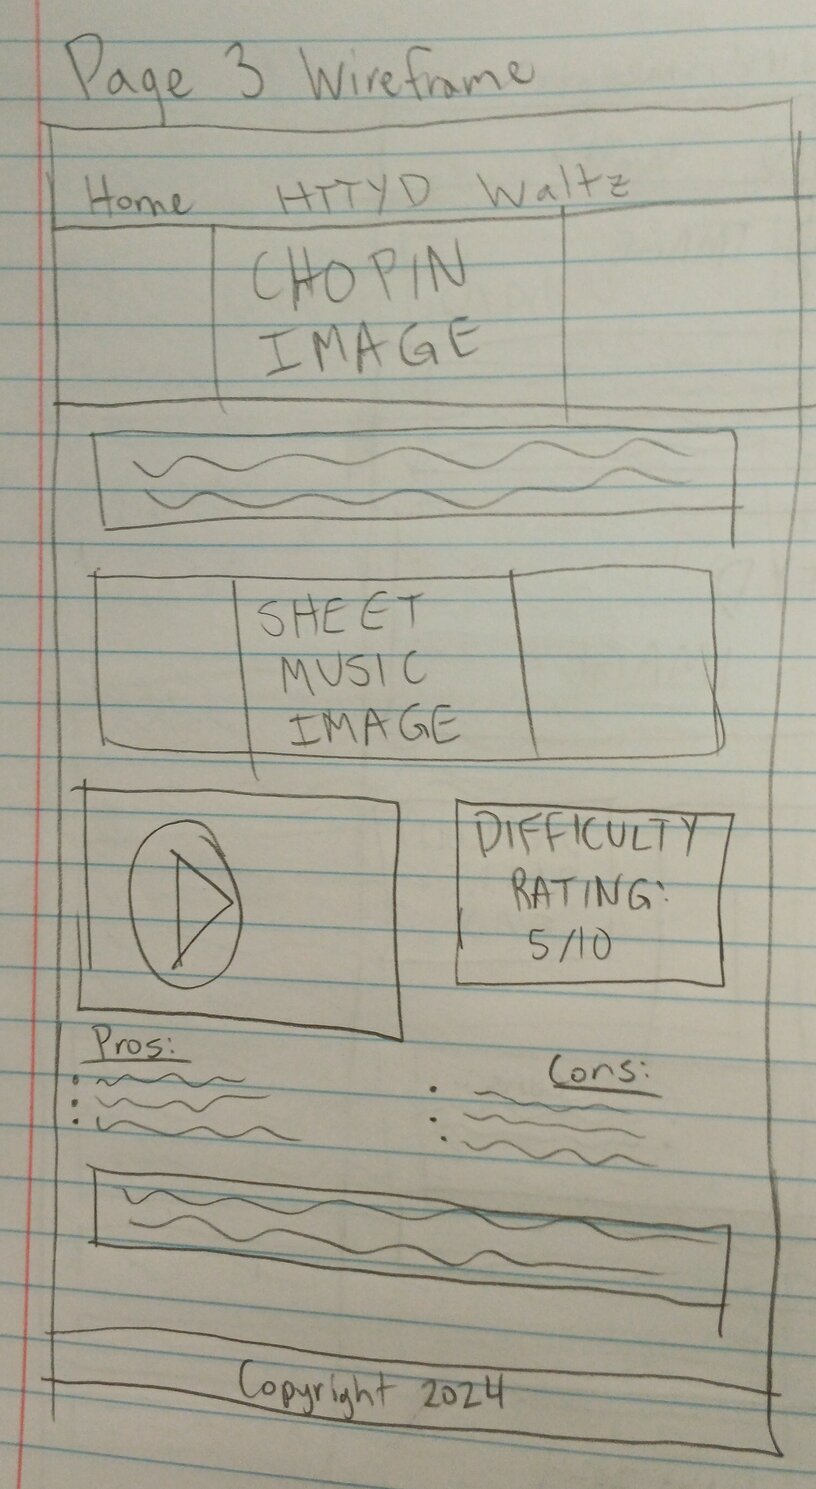 Page 3 Wireframe
Home HTTYD Waltz
CHOPIN
IMAGE
SHEET
MUSIC
IMAGE
DIFFICULTY
RATING:
5/10
Pros:
Cons:
Copyright 2024